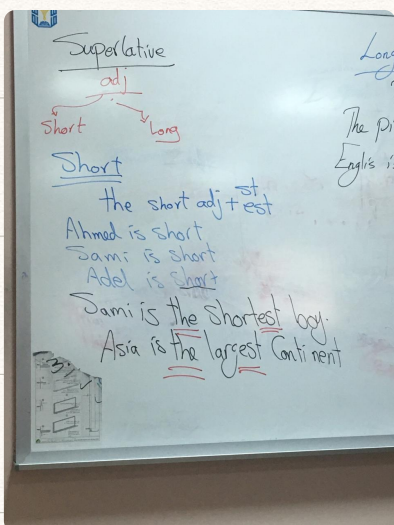 Superlative
adj
Short
Long
Short
the short adj + est
st
Ahmed is short
Sami is short
Adel is short
Sami is the shortest boy.
Asia is the largest Continent
Long
The pi
Englis is